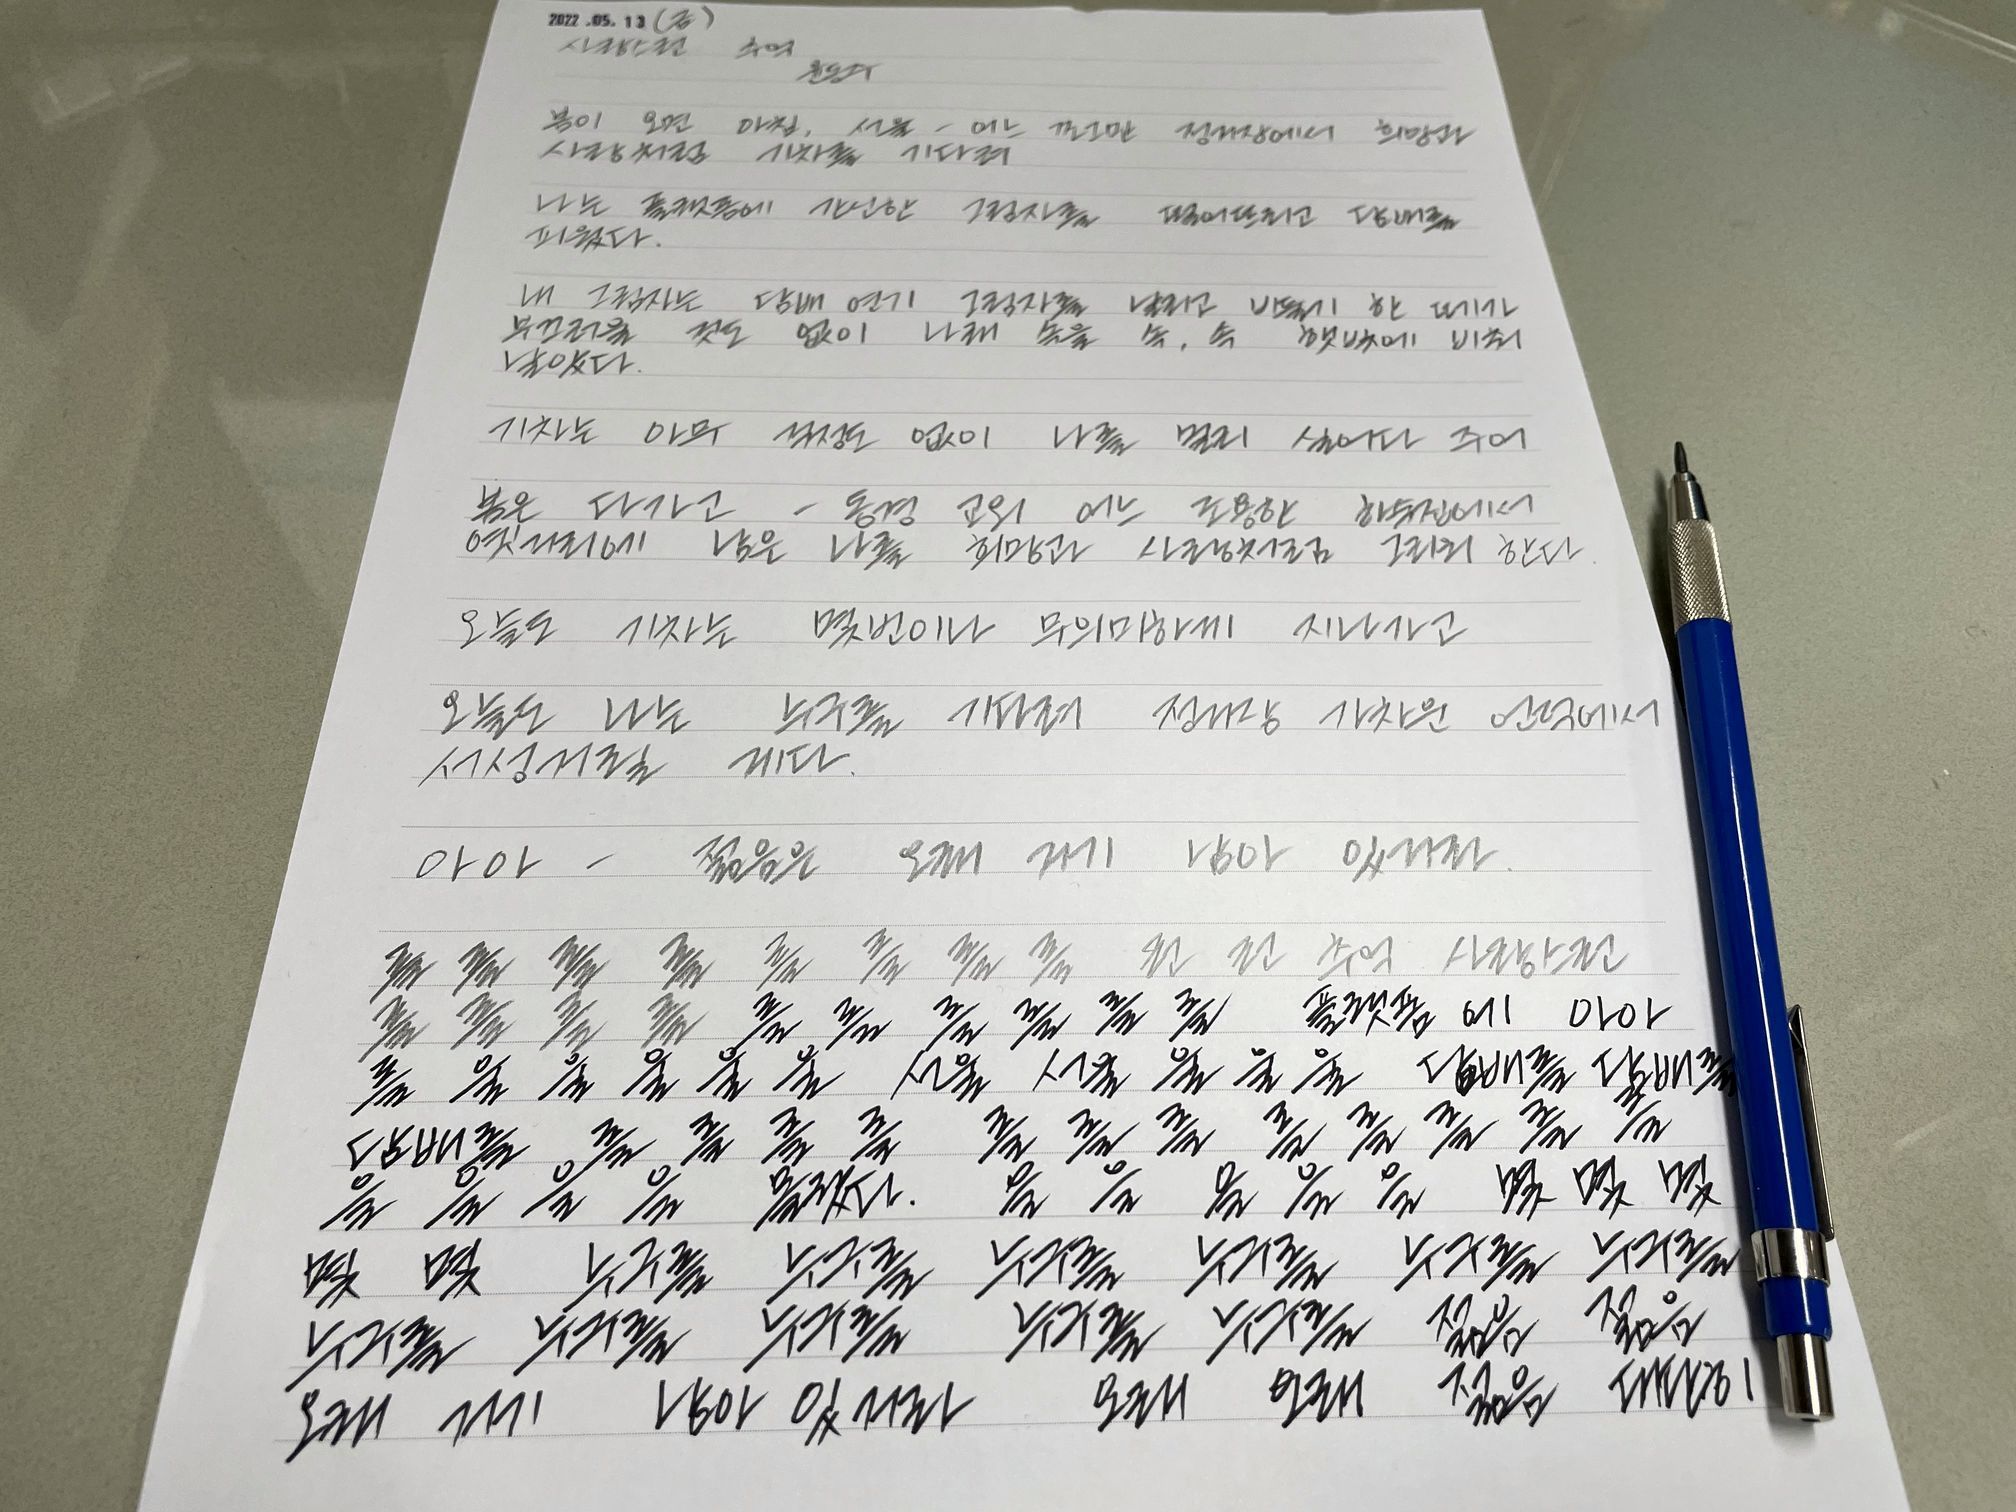 2022.05.13 (금)
사랑스런 추억
윤동주
봄이 오면 아침, 서울 - 어느 쪼그만 정거장에서 희망과
사랑처럼 기차를 기다려
나는 플랫폼에 간신한 그림자를 떨어뜨리고 담배를
피웠다.
내 그림자는 담배 연기 그림자를 날리고 비둘기 한 떼가
부끄러울 것도 없이 나래 속을 속, 속 햇빛에 비춰
날았다.
기차는 아무 새로움도 없이 나를 멀리 실어다 주어
봄은 다가고 - 동경 교외 어느 조용한 하숙방에서
옛거리에 남은 나를 희망과 사랑처럼 그리워 한다.
오늘도 기차는 몇번이나 무의미하게 지나가고
오늘도 나는 누구를 기다려 정거장 가차운 언덕에서
서성거릴 게다.
아아 - 젊음은 오래 거기 남아 있거라.
를 를 를 를 를 를 를 를 런 런 추억 사랑스런
를 를 를 를 를 를 를 를 를 를 플랫폼에 아아
를 울 울 울 울 울 서울 서울 울 울 울 담배를 담배를
담배를 를 를 를 를 를 를 를 를 를 를 를 를
을 을 을 을 올랐다. 을 을 을 을 을 몇 몇 몇
몇 몇 누구를 누구를 누구를 누구를 누구를 누구를
누구를 누구를 누구를 누구를 누구를 젊음 젊음
오래 거기 남아 있거라 오래 오래 젊음